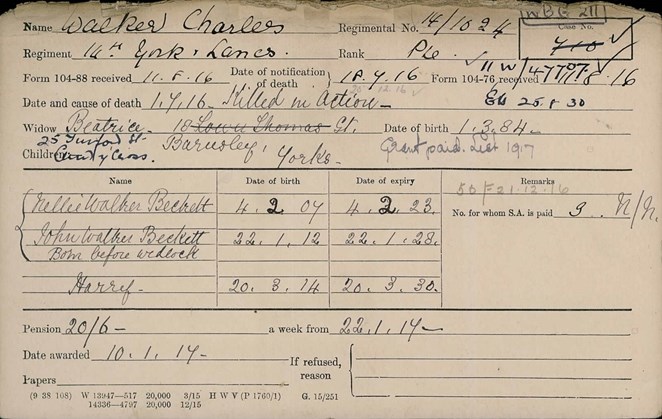 Name Walker Charles Regimental No. 14/1024 WBG 211 Case No. 710
Regiment 14th York & Lancs. Rank Pte 11 W/47707
Form 104-88 received 11.8.16 Date of notification of death } 18.7.16 Form 104-76 received 11.8.16
Date and cause of death 1.7.16 - Killed in Action - 25.8.30
Widow Beatrice 18 Thomas St. Date of birth 1.3.84
25 St
Children Barnsley, Yorks. Grant paid. List 1917
Name Date of birth Date of expiry Remarks
50 F 21.12.16
Nellie Walker Beckett 4. 2. 07 4. 2. 23. No. for whom S.A. is paid 3 N/N.
John Walker Beckett 22. 1. 12 22. 1. 28.
Born before wedlock
20. 3. 14 20. 3. 30.
Pension 20/6 - a week from 22.1.17 -
Date awarded 10.1.17 - If refused, reason
Papers
(9 38 108) W 13947—517 20,000 3/15 H W V (P 1760/1) G. 15/251
14336—4797 20,000 12/15